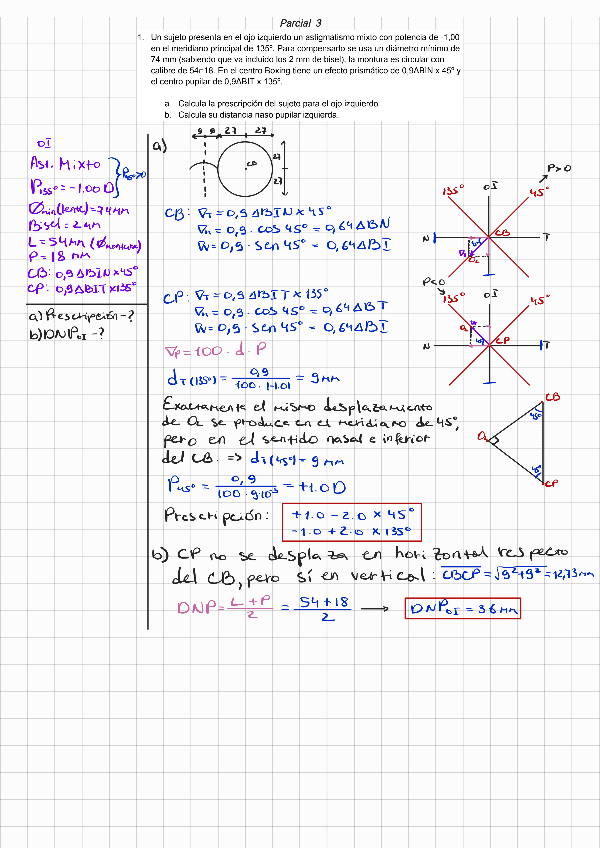 Parcial 3
1. Un sujeto presenta en el ojo izquierdo un astigmatismo mixto con potencia de -1,00
en el meridiano principal de 135º. Para compensarlo se usa un diámetro mínimo de
74 mm (sabiendo que va incluido los 2 mm de bisel), la montura es circular con
calibre de 54□18. En el centro Boxing tiene un efecto prismático de 0,9ΔBIN x 45º y
el centro pupilar de 0,9ΔBIT x 135º.
a. Calcula la prescripción del sujeto para el ojo izquierdo.
b. Calcula su distancia naso pupilar izquierda.
OI
Ast. Mixto
P135º = -1.00 D
P45º>0
Ømin(lente)=74mm
Bisel = 2mm
L = 54mm (Ømontura)
P = 18 mm
CB: 0,9ΔBIN×45º
CP: 0,9ΔBIT×135º
a) Prescripción -?
b) DNPOI -?
a)
9 9 27 27
CB
27
27
CB: ∇T = 0,9 ΔBIN × 45º
∇h = 0,9 · cos 45º = 0,64ΔBN
∇v = 0,9 · sen 45º = 0,64ΔBI
P>0
135º OI 45º
CB
N T
45º
∇T
OC
CP: ∇T = 0,9 ΔBIT × 135º
∇h = 0,9 · cos 45º = 0,64ΔBT
∇v = 0,9 · sen 45º = 0,64ΔBI
P<0
135º OI 45º
CP
N T
∇P = 100 · d · P
dT(135º) = 0,9 / 100 · |-1.0| = 9mm
Exactamente el mismo desplazamiento
de OC se produce en el meridiano de 45º,
pero en el sentido nasal e inferior
del CB. => dT(45º) = 9 mm
CB
45º
OC
45º
CP
P45º = 0,9 / 100 · 9·10⁻³ = +1.0D
Prescripción: +1.0 - 2.0 × 45º
-1.0 + 2.0 × 135º
b) CP no se desplaza en horizontal respecto
del CB, pero sí en vertical: CBCP = √9²+9² = 12,73mm
DNP = L + P / 2 = 54+18 / 2 → DNPOI = 36 mm